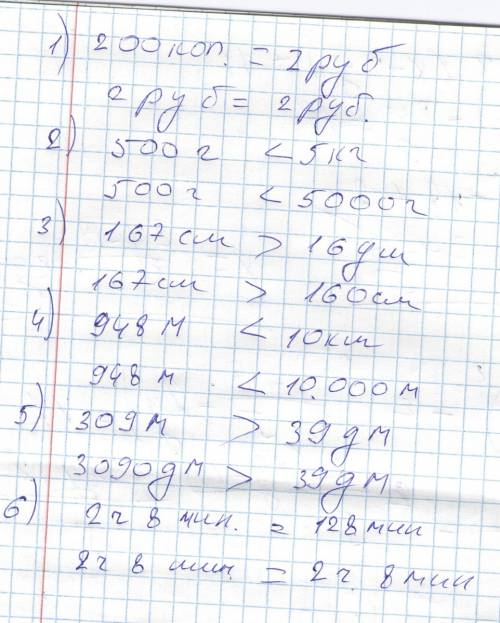 1) 200 коп. = 2 руб
2 руб = 2 руб.
2) 500 г < 5 кг
500 г < 5000 г
3) 167 см > 16 дм
167 см > 160 см
4) 948 м < 10 км
948 м < 10.000 м
5) 309 м > 39 дм
3090 дм > 39 дм
6) 2 ч 8 мин. = 128 мин
2 ч 8 мин. = 2 ч. 8 мин